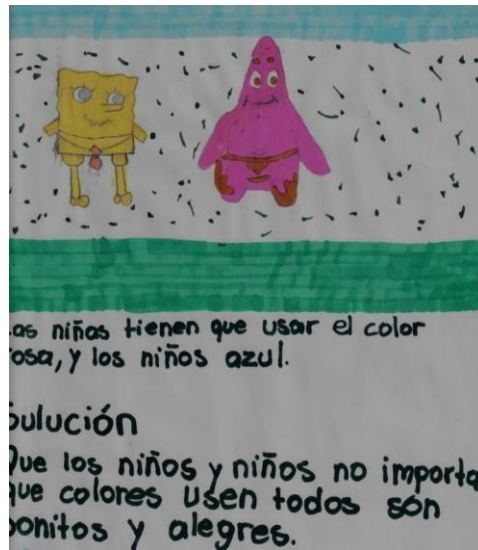 as niñas tienen que usar el color
osa, y los niños azul.
Sulución
Que los niños y niños no importa
que colores usen todos són
bonitos y alegres.